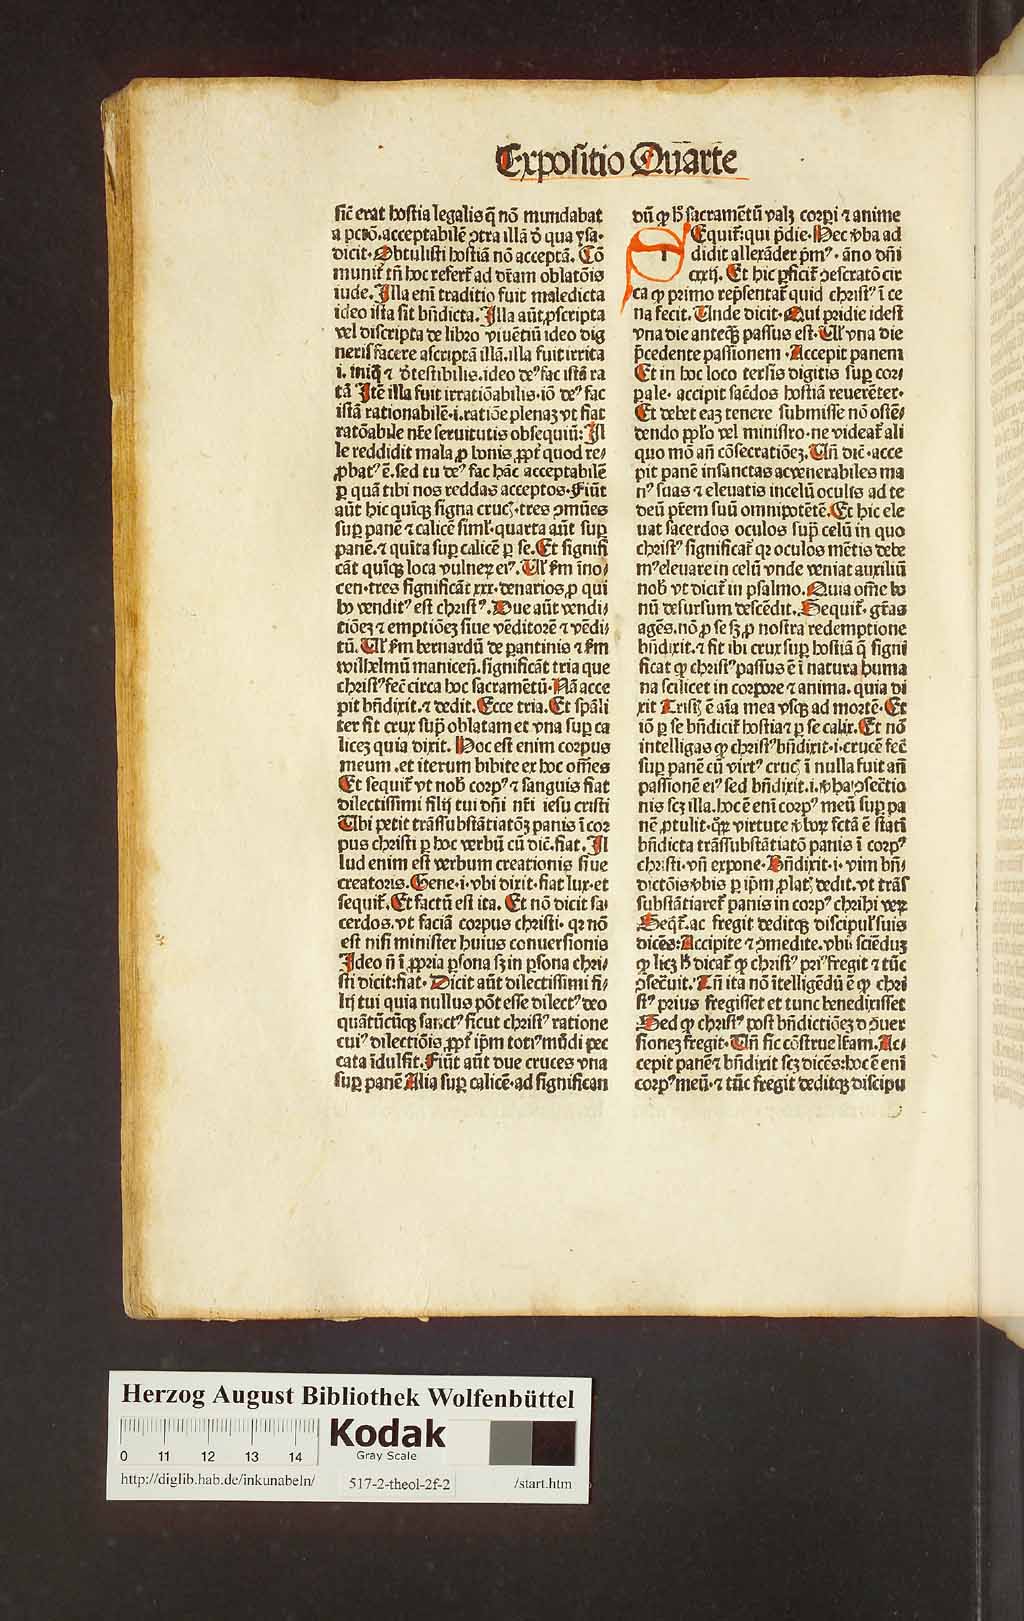 Expositio Qūarte
sic̄ erat hostia legalis q̄ nō mundabat
a pctō.acceptabilē ꝯtra illā ð qua ysa.
dicit.Obtulisti hostiā nō acceptā. Cō
munit᷑ tn̄ hoc refert᷑ ad dr̄am oblatōis
iude.Illa etiā traditio fuit maledicta
ideo ista sit bn̄dicta.Illa aūt ꝓscripta
vel discripta de libro viuētiū ideo dig
neris facere ascriptā illā.illa fuit irrita
i. iniq̄ ⁊ ðtestibilis.ideo deꝰ fac istā ra
tā Itē illa fuit irratiōabilis.iō deꝰ fac
istā rationabilē.i.ratiōe plenaꝫ vt fiat
ratōabile nr̄e seruitutis obsequiū: Il
le reddidit mala ꝓ bonis ꝓpt᷑ quod re/
ꝓbatꝰ ē.sed tu deꝰ fac hāc acceptabilē
ꝑ quā tibi nos reddas acceptos.Fiūt
aūt hic quīqꝫ signa cruc̄.tres ꝯmūes
suꝑ panē ⁊ calicē siml᷑.quarta aūt suꝑ
panē.⁊ quīta suꝑ calicē ꝑ se.Et signifi
cāt quīqꝫ loca vulneꝝ eiꝰ.Ul᷑ ẜm īno/
cen.tres significāt xxx.denarios ꝓ qui
bꝰ venditꝰ est christꝰ.Due aūt vendi/
tiōeꝫ ⁊ emptiōeꝫ siue vēditorē ⁊ vēdi/
tū.Ul᷑ ẜm bernardū de pantinis ⁊ ẜm
wilhelmū manicen̄.significāt tria que
christꝰ fec̄ circa hoc sacramētū.Nā acce
pit bn̄dixit.⁊ dedit.Ecce tria.Et spāli
ter fit crux sup̄ oblatam et vna suꝑ ca
liceꝫ quia dixit. Hoc est enim corpus
meum.et iterum bibite ex hoc om̄es
Et sequit᷑ vt nob̄ corpꝰ ⁊ sanguis fiat
dilectissimi filij tui dn̄i nr̄i iesu cristi
Ubi petit trāssubstātiatōꝫ panis ī cor
pus christi ꝑ hoc verbū cū dic̄.fiat.Il
lud enim est verbum creationis siue
creatoris.Gene.i.vbi dixit.fiat lux.et
sequit᷑.Et factū est ita. Et nō dicit sa/
cerdos.vt faciā corpus christi. qꝛ nō
est nisi minister huius conuersionis
Ideo n̄ ī ꝓpria ꝑsona sꝫ in ꝑsona chri/
sti dicit:fiat. Dicit aūt dilectissimi fi/
lij tui quia nullus pōt esse dilectꝰ deo
quātūcūqꝫ sanctꝰ sicut christꝰ ratione
cuiꝰ dilectiōis ꝓpt᷑ ip̄m totiꝰ mūdi pec
cata īdulsit.Fiūt aūt due cruces vna
suꝑ panē Alia suꝑ calicē.ad significan
dū ꝙ hꝰ sacramētū valꝫ corpi ⁊ anime
Equit᷑:qui p̄die.Hec v̄ba ad
didit allexāder pm̄ꝰ. āno dn̄i
cxxij. Et hic ꝑficit᷑ ꝯsecratō cir
ca ꝙ primo rep̄sentat᷑ quid christꝰ ī ce
na fecit. Unde dicit.Qui pridie idest
vna die anteqꝫ passus est.Ul᷑ vna die
p̄cedente passionem .Accepit panem
Et in hoc loco tersis digitis suꝑ cor/
pale. accipit saēdos hostiā reuerēter.
Et debet eaꝫ tenere submisse nō ostē/
dendo pp̄lo vel ministro.ne videat᷑ ali
quo mō an̄ cōsecratiōeꝫ.Un̄ dic̄.acce
pit panē insanctas acvenerabiles ma
nꝰ suas ⁊ eleuatis incelū oculis ad te
deū pr̄em suū omnipotētē.Et hic ele
uat sacerdos oculos sup̄ celū in quo
christꝰ significat᷑ qꝛ oculos mētis debe
mꝰ eleuare in celū vnde veniat auxiliū
nob̄ vt dicit᷑ in psalmo. Quia om̄e bo
nū desursum descēdit.Sequit᷑. gr̄as
agēs.nō ꝓ se sꝫ ꝓ nostra redemptione
bn̄dixit.⁊ fit ibi crux suꝑ hostiā q̄ signi
ficat ꝙ christꝰ passus ē ī natura huma
na scilicet in corpore ⁊ anima. quia di
xit Trist̄ ē aīa mea vsqꝫ ad mortē.Et
iō ꝑ se bn̄dicit᷑ hostia ⁊ ꝑ se calix.Et nō
intelligas ꝙ christꝰ bn̄dixit.i.crucē fec̄
suꝑ panē cū virtꝰ cruc̄ ī nulla fuit an̄
passionē eiꝰ sed bn̄dixit.i.v̄ba ꝯsec̄tio
nis scꝫ illa.hoc ē eni corpꝰ meū suꝑ pa
nē ꝓtulit.qꝝ virtute v̄boꝝ fc̄tā ē statī
bn̄dicta trāssubstātiatō panis ī corpꝰ
christi.vn̄ expone.Bn̄dixit.i.vim bn̄/
dictōis v̄bis ꝑ ip̄m ꝓlat̄ dedit.vt trās
substātiaret᷑ panis in corpꝰ chrihi veꝝ
Seqt᷑.ac fregit deditqꝫ discipul᷑ suis
dicēs:Accipite ⁊ ꝯmedite.vbi sciēduꝫ
ꝙ licꝫ h̄ dicat᷑ ꝙ christꝰ priꝰ fregit ⁊ tūc
ꝯsec̄uit. Tn̄ ita nō ītelligēdū ē ꝙ chri
stꝰ prius fregisset et tunc benedixisset
Sed ꝙ christꝰ post bn̄dictiōeꝫ ⁊ ꝯuer
sioneꝫ fregit. Un̄ sic cōstrue lr̄am.Ac/
cepit panē ⁊ bn̄dixit scꝫ dicēs:hoc ē eni
corpꝰ meū.⁊ tūc fregit deditqꝫ discipu
Herzog August Bibliothek Wolfenbüttel
Kodak
Gray Scale
0 11 12 13 14
http://diglib.hab.de/inkunabeln/ 517-2-theol-2f-2 /start.htm